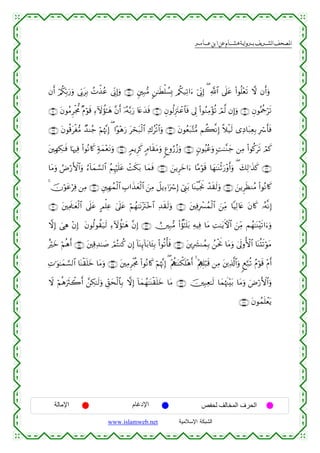 المصحف الشريف برواية هشام عن ابن عامر
وَأَن لَّا تَعْلُوا۟ عَلَى ٱللَّهِ إِنِّىٓ ءَاتِيكُم بِسُلْطَٰنٍ مُّبِينٍ وَإِنِّى عُذْتُ بِرَبِّى وَرَبِّكُمْ أَن
تَرْجُمُونِ وَإِن لَّمْ تُؤْمِنُوا۟ لِى فَٱعْتَزِلُونِ فَدَعَا رَبَّهُۥٓ أَنَّ هَٰٓؤُلَآءِ قَوْمٌ مُّجْرِمُونَ
فَأَسْرِ بِعِبَادِى لَيْلًا إِنَّكُم مُّتَّبَعُونَ وَٱتْرُكِ ٱلْبَحْرَ رَهْوًا إِنَّهُمْ جُندٌ مُّغْرَقُونَ
كَمْ تَرَكُوا۟ مِن جَنَّٰتٍ وَعُيُونٍ وَزُرُوعٍ وَمَقَامٍ كَرِيمٍ وَنَعْمَةٍ كَانُوا۟ فِيهَا فَٰكِهِينَ
كَذَٰلِكَ وَأَوْرَثْنَٰهَا قَوْمًا ءَاخَرِينَ فَمَا بَكَتْ عَلَيْهِمُ ٱلسَّمَآءُ وَٱلْأَرْضُ وَمَا
كَانُوا۟ مُنظَرِينَ وَلَقَدْ نَجَّيْنَا بَنِىٓ إِسْرَٰٓءِيلَ مِنَ ٱلْعَذَابِ ٱلْمُهِينِ مِن فِرْعَوْنَ
إِنَّهُۥ كَانَ عَالِيًا مِّنَ ٱلْمُسْرِفِينَ وَلَقَدِ ٱخْتَرْنَٰهُمْ عَلَىٰ عِلْمٍ عَلَى ٱلْعَٰلَمِينَ
وَءَاتَيْنَٰهُم مِّنَ ٱلْءَايَٰتِ مَا فِيهِ بَلَٰٓؤٌا۟ مُّبِينٌ إِنَّ هَٰٓؤُلَآءِ لَيَقُولُونَ إِنْ هِىَ إِلَّا
مَوْتَتُنَا ٱلْأُولَىٰ وَمَا نَحْنُ بِمُنشَرِينَ فَأْتُوا۟ بِـَٔابَآئِنَآ إِن كُنتُمْ صَٰدِقِينَ أَهُمْ خَيْرٌ
أَمْ قَوْمُ تُبَّعٍ وَٱلَّذِينَ مِن قَبْلِهِمْ أَهْلَكْنَٰهُمْ إِنَّهُمْ كَانُوا۟ مُجْرِمِينَ وَمَا خَلَقْنَا ٱلسَّمَٰوَٰتِ
وَٱلْأَرْضَ وَمَا بَيْنَهُمَا لَٰعِبِينَ مَا خَلَقْنَٰهُمَآ إِلَّا بِٱلْحَقِّ وَلَٰكِنَّ أَكْثَرَهُمْ لَا
يَعْلَمُونَ
الحرف المخالف لحفص الإدغام الإمالة
www.islamweb.net الشبكة الإسلامية